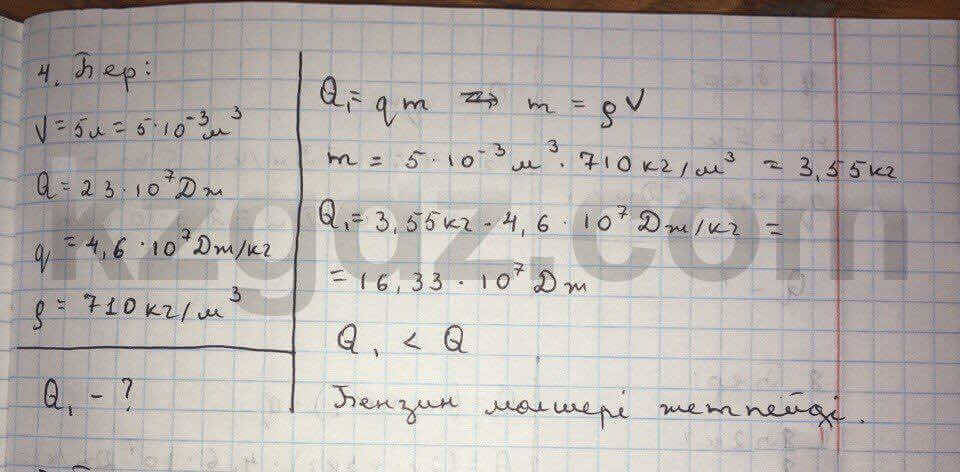 4. Бер:
V = 5л = 5·10⁻³ м³
Q = 23·10⁷ Дж
q = 4,6·10⁷ Дж/кг
ρ = 710 кг/м³
Q₁ - ?
Q₁ = qm => m = ρV
m = 5·10⁻³ м³·710 кг/м³ = 3,55 кг
Q₁ = 3,55 кг·4,6·10⁷ Дж/кг =
= 16,33·10⁷ Дж
Q₁ < Q
Бензин мөлшері жетпейді.
kzgdz.com